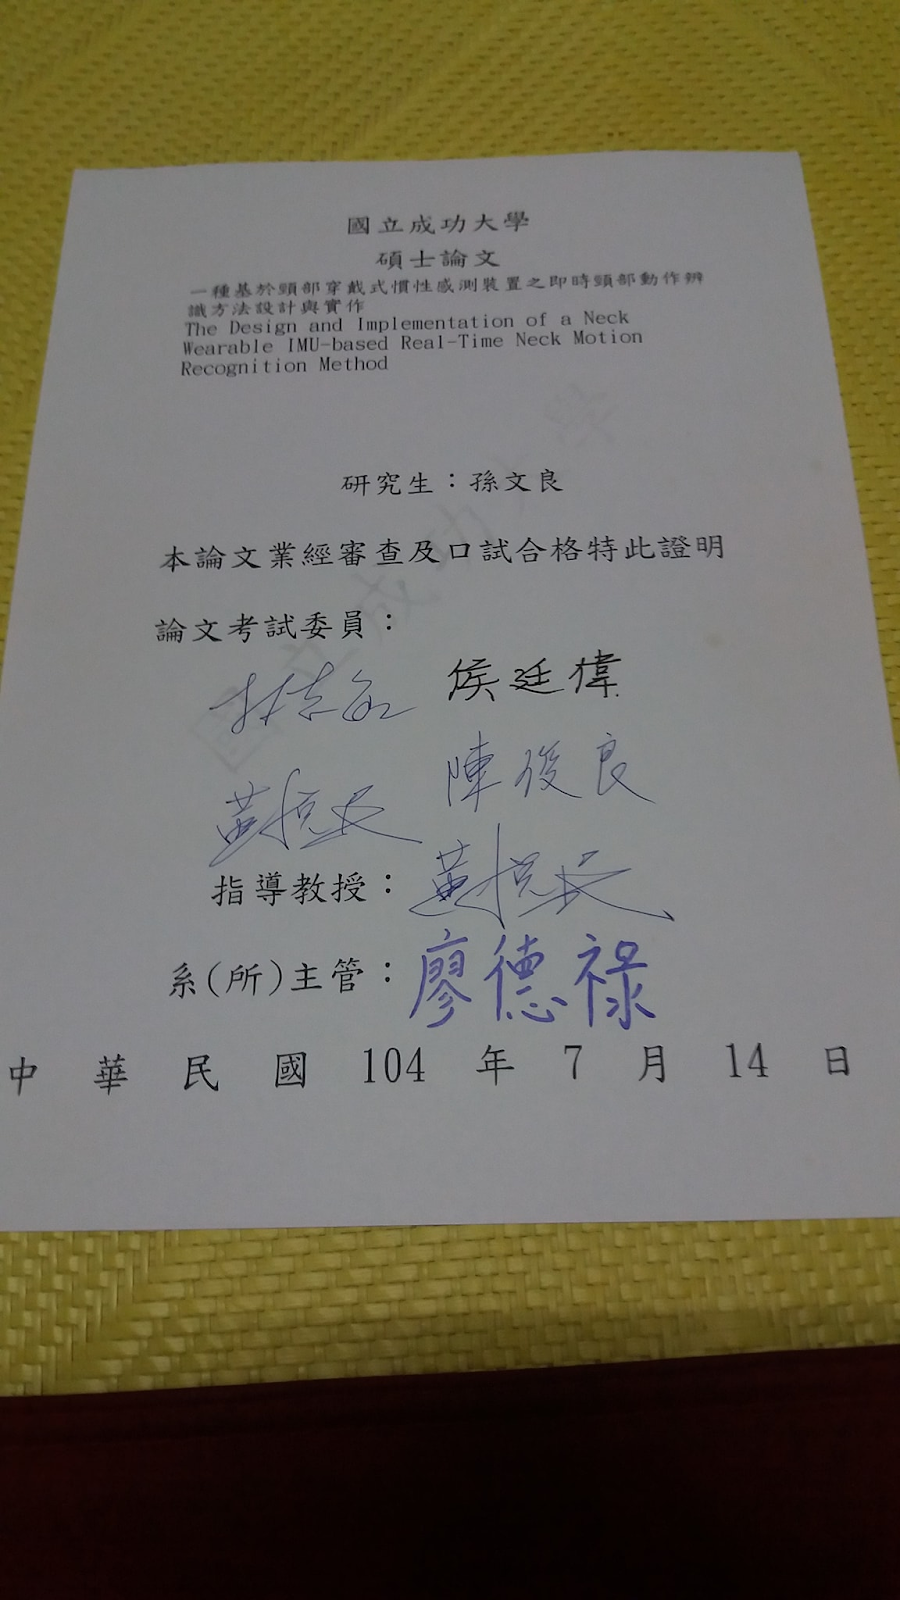 國立成功大學
碩士論文
一種基於頸部穿戴式慣性感測裝置之即時頸部動作辨
識方法設計與實作
The Design and Implementation of a Neck
Wearable IMU-based Real-Time Neck Motion
Recognition Method
研究生：孫文良
本論文業經審查及口試合格特此證明
論文考試委員：
侯廷偉
黃悅民 陳俊良
指導教授：黃悅民
系(所)主管：廖德祿
中華民國 104 年 7 月 14 日
國立成功大學